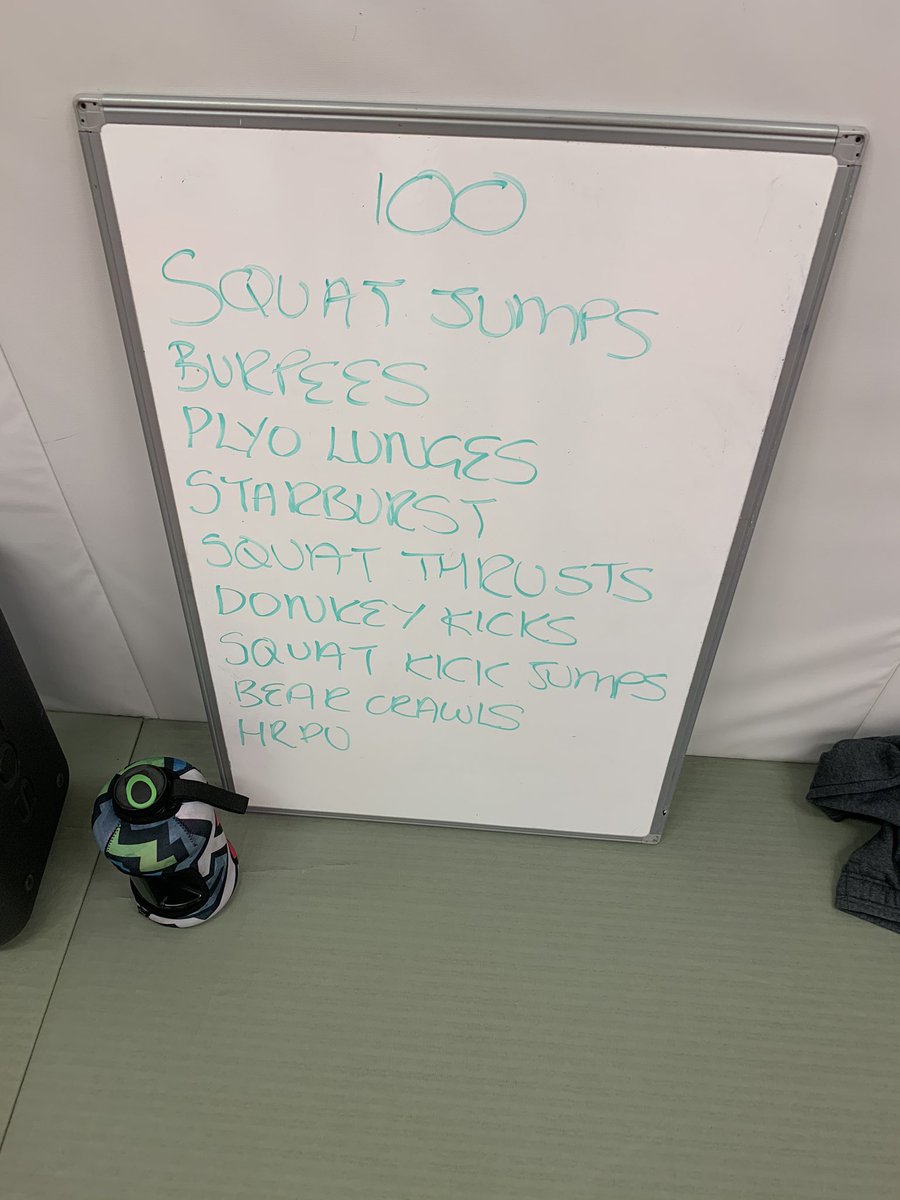 100
SQUAT JUMPS
BURPEES
PLYO LUNGES
STARBURST
SQUAT THRUSTS
DONKEY KICKS
SQUAT KICK JUMPS
BEAR CRAWLS
HRPU